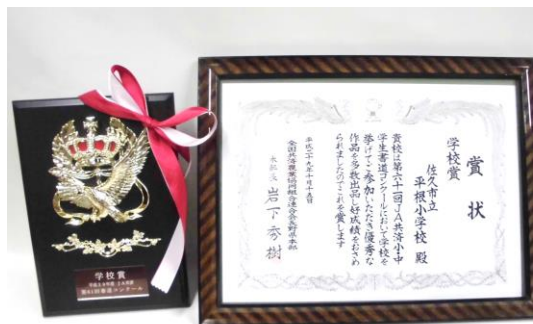 学校賞
平成29年度 JA共済
第61回書道コンクール
賞状
学校賞
佐久市立
平根小学校 殿
貴校は第六十一回JA共済小中
学生書道コンクールにおいて学校を
挙げてご参加いただき優秀な
作品を多数出品し好成績をおさめ
られましたのでこれを賞します
平成二十九年十月十五日
全国共済農業協同組合連合会長野県本部
本部長 岩下秀樹